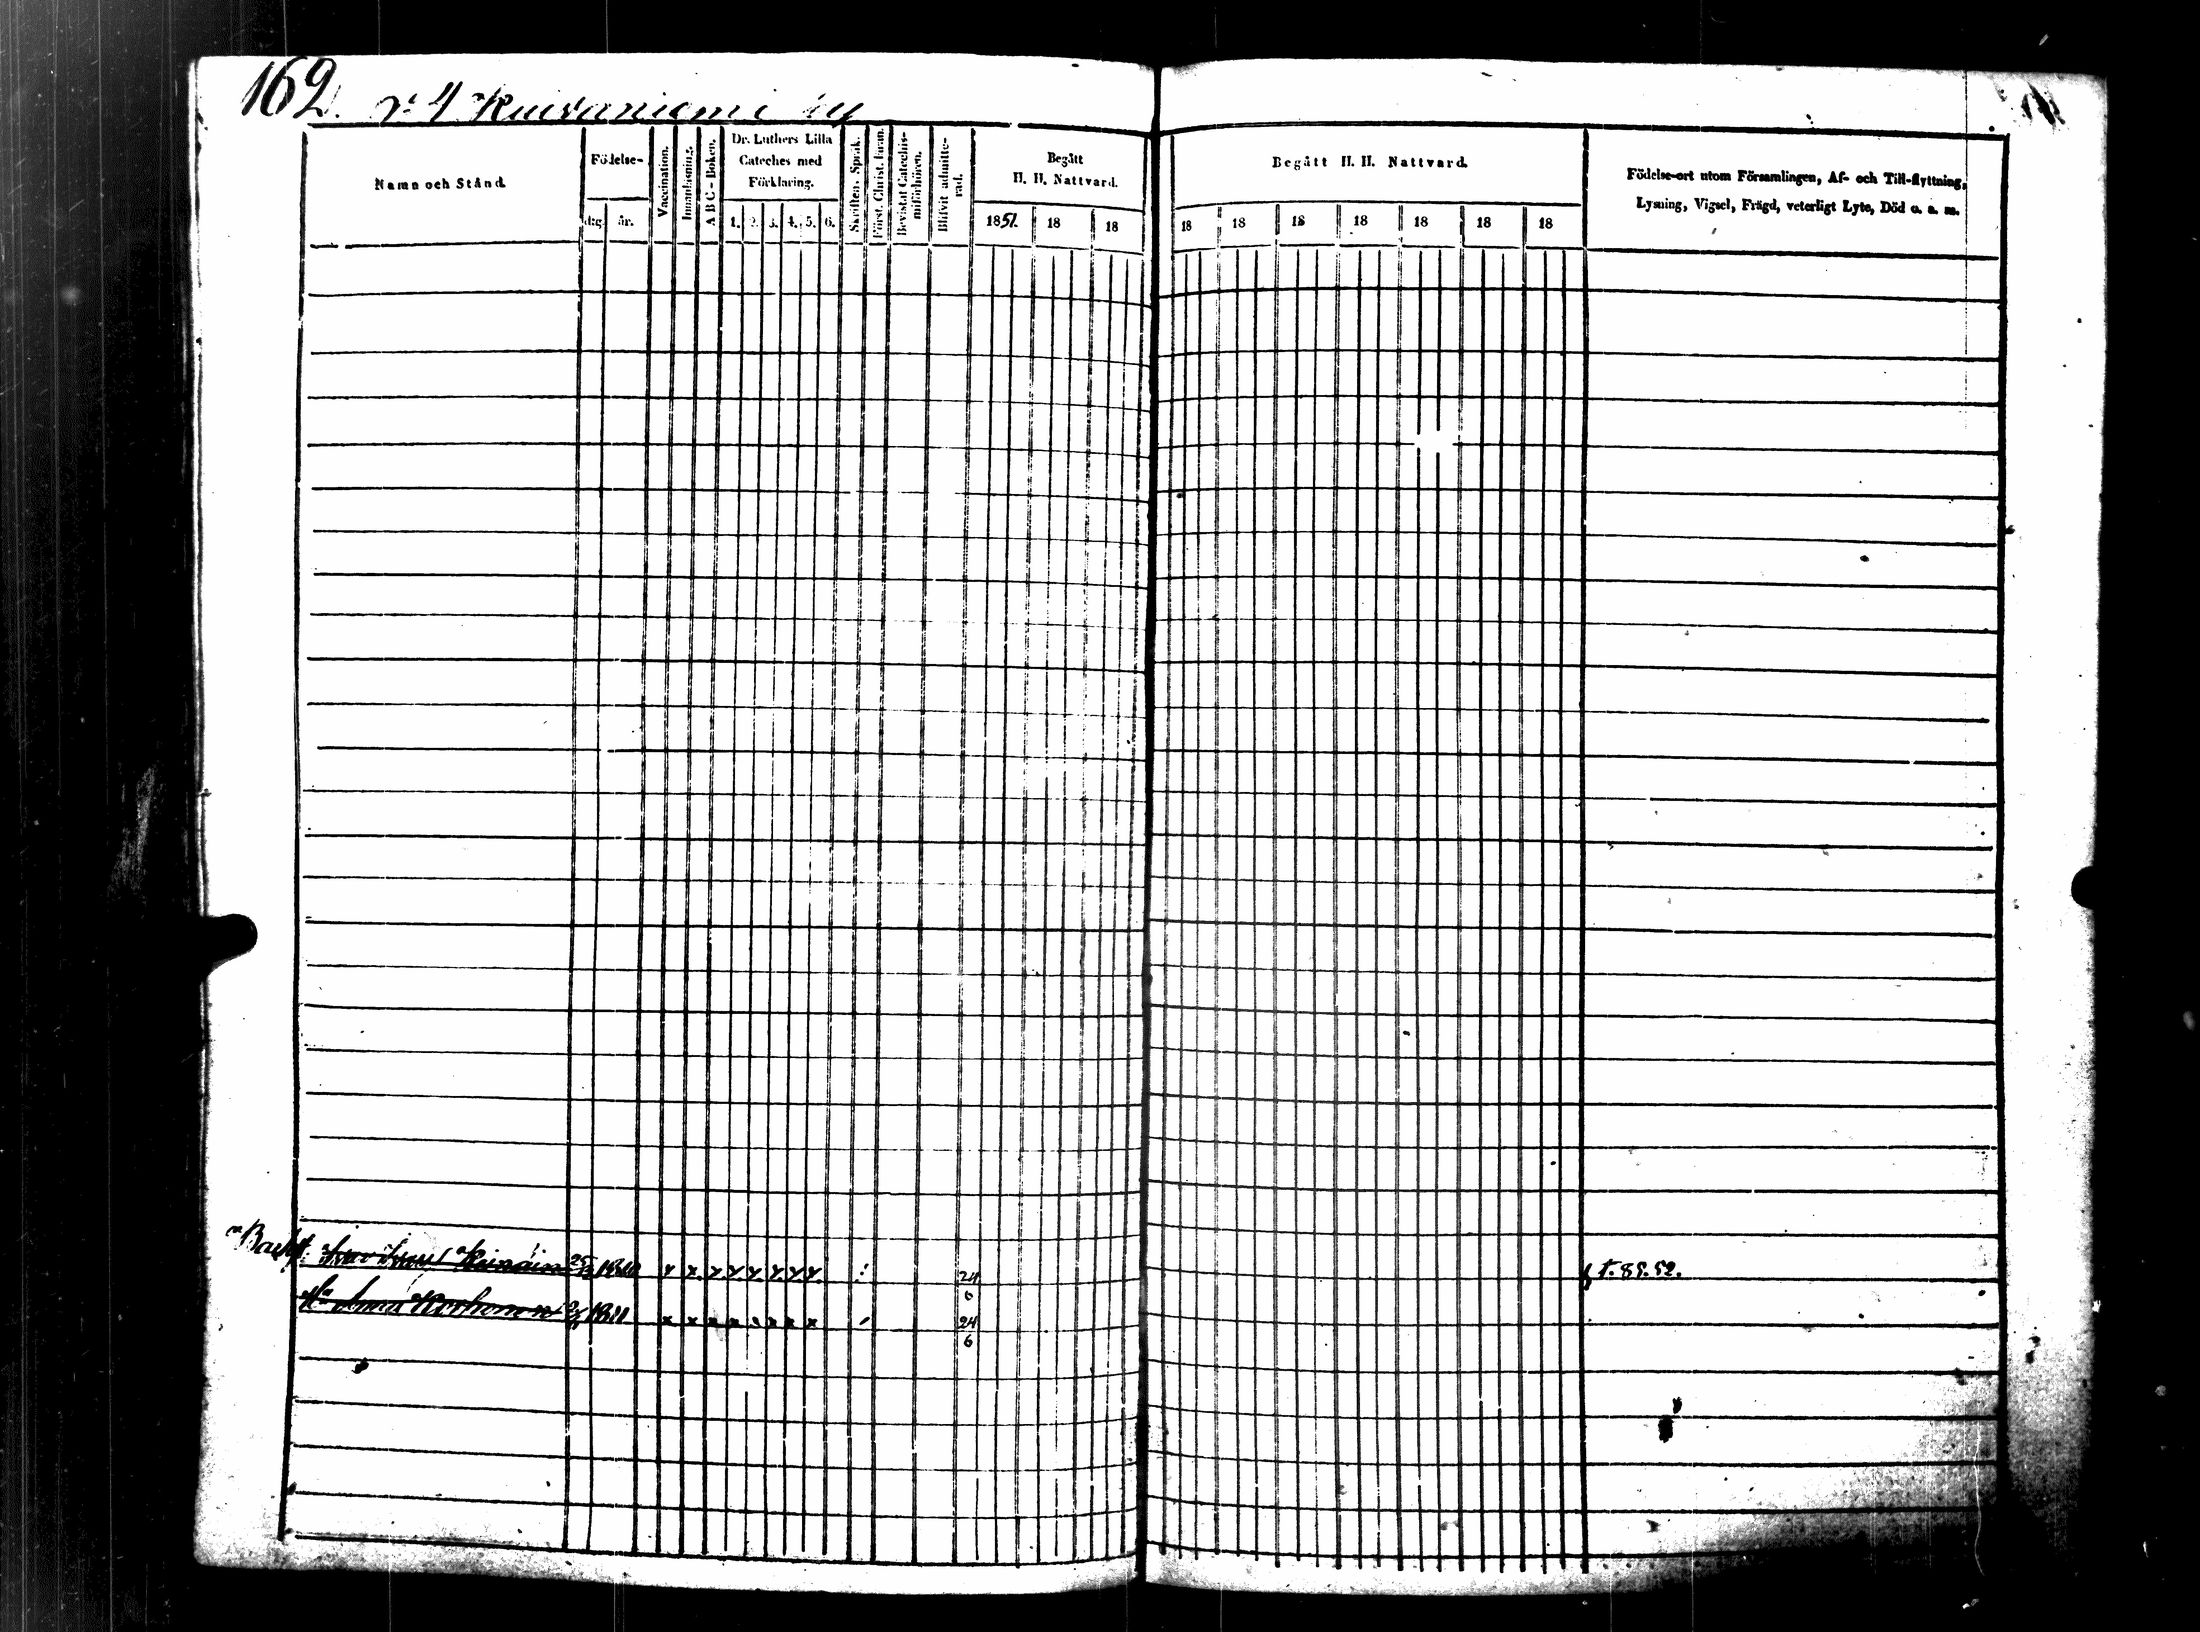 162. N:o 4 Kuivaniemi by
Namn och Stånd.
Födelse-
dag. år.
Vaccination.
Innanläsning.
ABC-Boken.
Dr. Luthers Lilla
Cateches med
Förklaring.
1. 2. 3. 4. 5. 6.
Skriften. Språk.
Först. Christ. Läran.
Bevistat Catechis-
miförhören.
Blifvit admitte-
rad.
Begått
H. H. Nattvard.
1851. 18 18
Begått H. H. Nattvard.
18 18 18 18 18 18 18
Födelse-ort utom Församlingen, Af- och Till-flyttning,
Lysning, Vigsel, Frägd, veterligt Lyte, Död o. a. m.
24
6
t. 85. 52.
H:u Anna Korhonen 1811
24
6